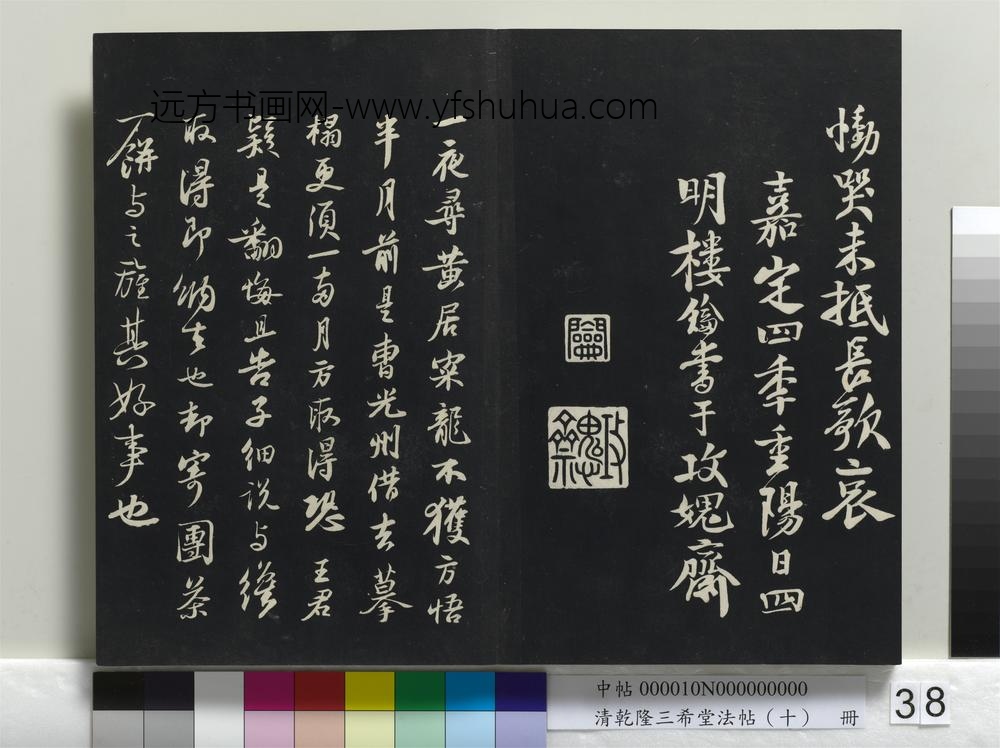 远方书画网-www.yfshuhua.com
慟哭未抵長歌哀
嘉定四季重陽日四
明樓鑰書于攻媿齋
攻媿齋
一夜尋黃居寀龍不獲方悟
半月前是曹光州借去摹
榻更須一兩月方取得恐王君
疑是翻悔且告子細說與纔
取得即納去也却寄團茶
一餅与之旌其好事也
中帖 000010N000000000
清乾隆三希堂法帖（十） 冊
38